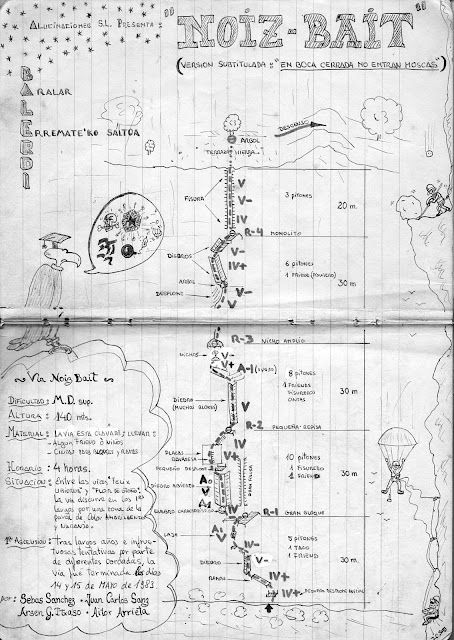 ALUCINACIONES S.L. PRESENTA:
"NOIZ-BAIT"
(VERSION SUBTITULADA: "EN BOCA CERRADA NO ENTRAN MOSCAS")
BALERDI
ARALAR
ERREMATE'KO SALTOA
ARBOL
DESCENSO
TERRAZA HIERBA
FISURA
V
V-
IV
3 pitones
20 m.
R-4 MONOLITO
DIEDROS
V-
IV+
6 pitones
1 FRIEND
30 m
ARBOL
DESPLOME
V-
V
R-3 NICHO AMPLIO
NICHOS
V
V+
A-1
DIEDRO
(MUCHOS BLOQUES)
V
8 pitones
1 FRIENDS
FISURERO
CINTAS
30 m
R-2 PEQUEÑA REPISA
PLACAS
IV
V+
PEQUEÑO DESPLOME
DIEDRO
A0
V
IV
10 pitones
1 FISURERO
1 FRIEND
30 m
R-1 GRAN BUQUE
LAJA
A1
V
IV-
DIEDRO
V-
IV-
IV+
5 pitones
1 TACO
1 FRIEND
30 m
Vía Noiz Bait
DIFICULTAD: M.D. sup.
ALTURA: 140 mts.
MATERIAL: LA VIA ESTA CLAVADA; LLEVAR:
- ALGUN FRIEND O NUTS
- CINTAS PARA BLOQUES Y RAMAS
HORARIO: 4 horas.
SITUACION: Entre las vias
la via discurre en los
largos por una zona de la
pared de color
y naranja.
1ª Ascension: Tras largos años e infruc-
tuosas tentativas por parte
de diferentes cordadas, la
vía fue terminada los días
14 y 15 de MAYO de 1983
por: Sebas Sanchez - Juan Carlos Sanz
- Aitor Arrieta